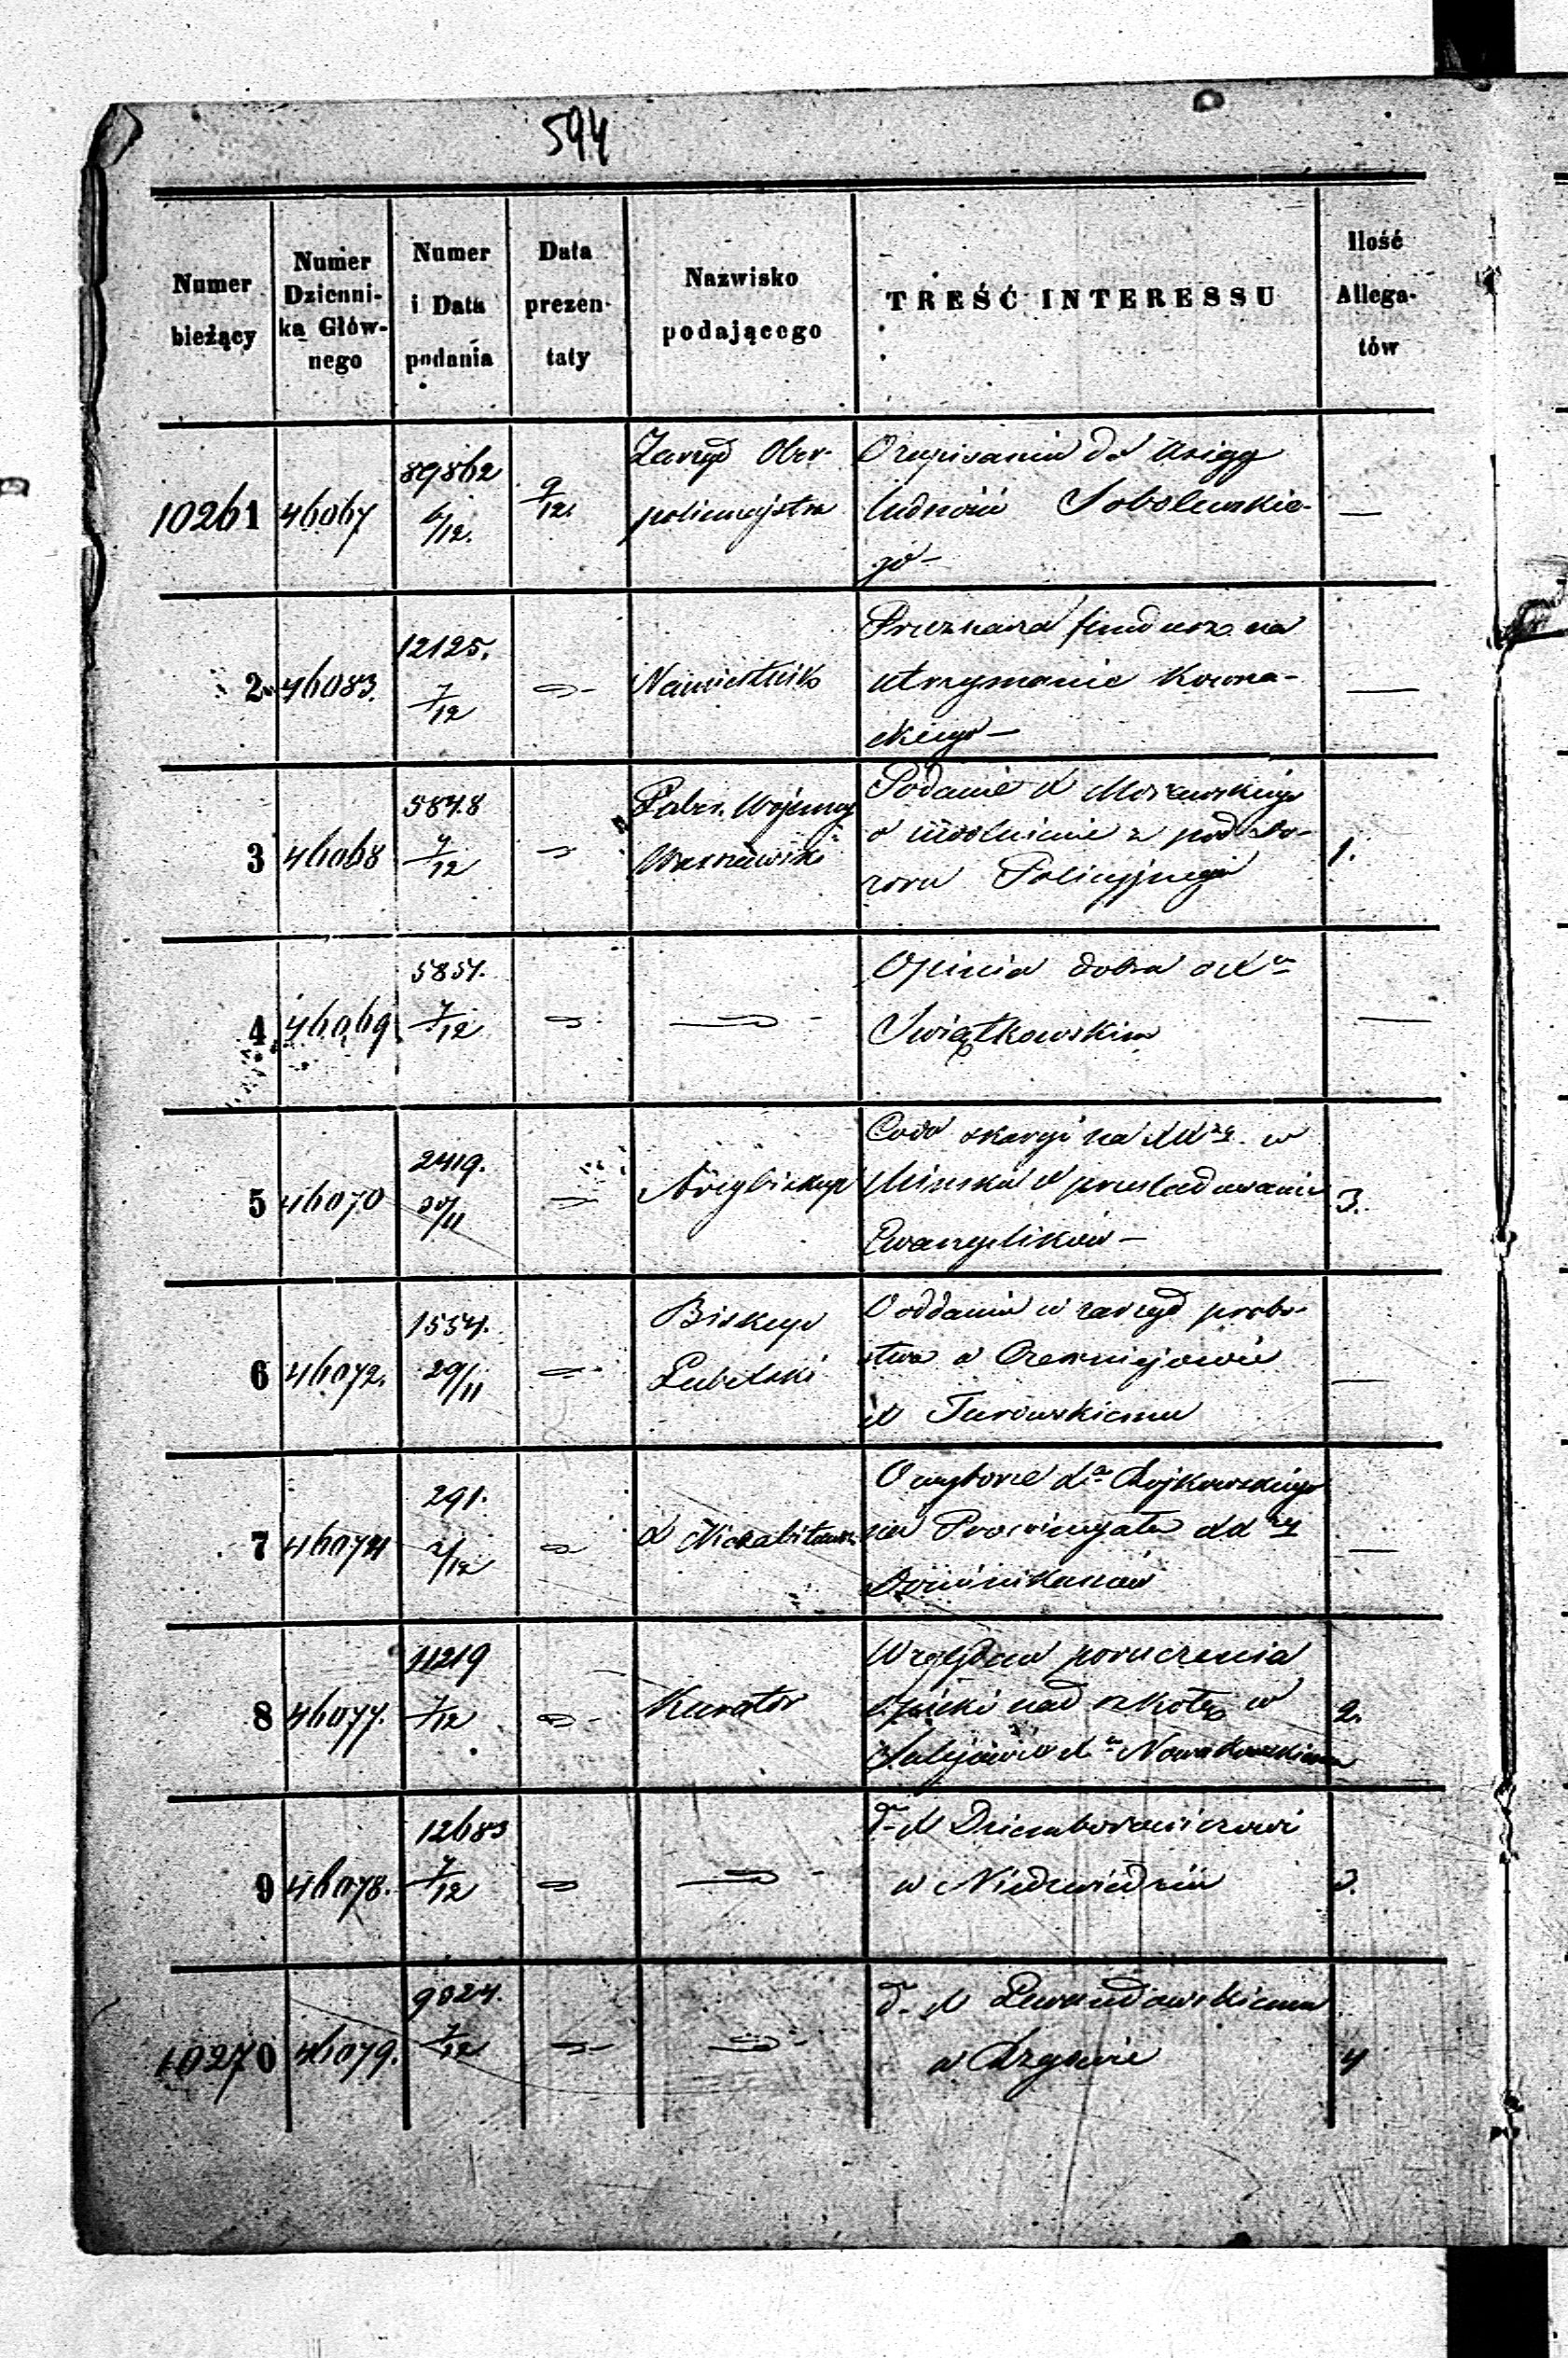 594
Numer bieżący
Numer Dzienni-ka Głów-nego
Numer i Data podania
Data prezen-taty
Nazwisko podającego
TREŚĆ INTERESSU
Ilość Allega-tów
10261 46067 89862 6/12. 9/12. Zarząd Ober-
policmajstra
O zapisaniu do Księgg
ludności Sobolewskie-
go —
2 46083. 12125. 7/12 Namiestnik
Przeznacza fundusz na
utrzymanie Kowna-
ckiego —
3 46068 5848 7/12 Wojenny
Warszawski
Podanie X Morawskiego
o uwolnienie z pod do-
zoru Policyjnego
1.
4 46069 5857. 7/12
Opinia dobra o Xu
Swiątkowskim
5 46070 2419. 30/11 Arcybiskup
Co do skargi na XX w
Minsku o prześladowanie
Ewangelików —
3.
6 46072. 1554. 29/11 Biskup
Lubelski
O oddaniu w zarząd probo-
stwa w Czerniejowie
X Turowskiemu
7 46074 291. 2/12 X
O wyborze Xa
na Prowincyała XX
Dominikanów
8 46077. 11219 7/12 Kurator
Względem poruczenia
opieki nad szkołą w
Xu Nowakowskiemu
2.
9 46078. 12683 7/12
X Dziemborowiczowi
w Niedzwiedziu
10270 46079. 9024. 7/12
X Lewandowskiemu
w
4